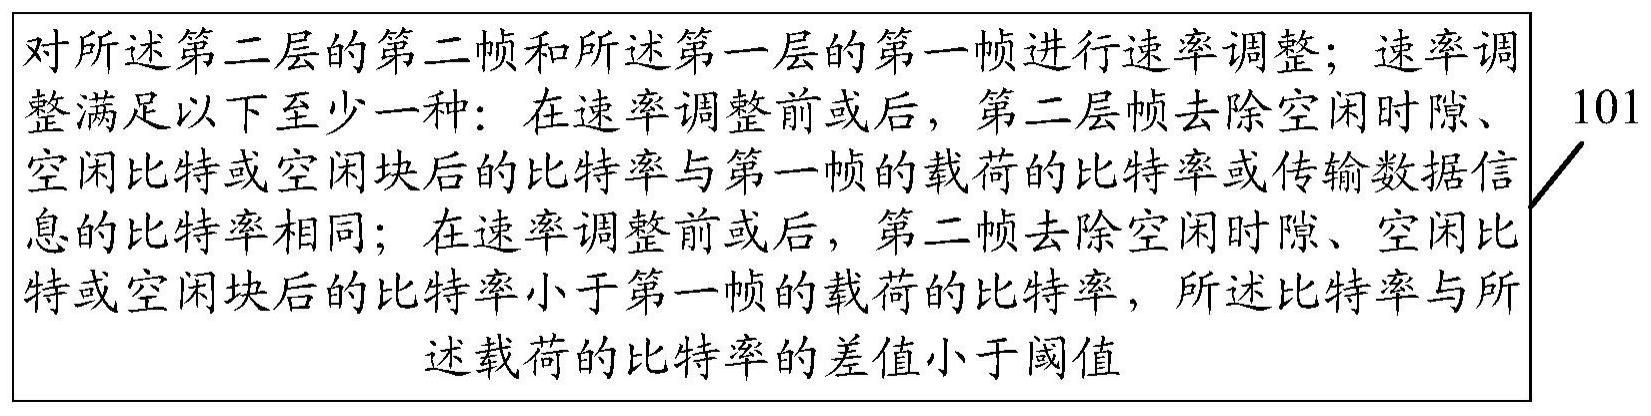 对所述第二层的第二帧和所述第一层的第一帧进行速率调整；速率调
整满足以下至少一种：在速率调整前或后，第二层帧去除空闲时隙、
空闲比特或空闲块后的比特率与第一帧的载荷的比特率或传输数据信
息的比特率相同；在速率调整前或后，第二帧去除空闲时隙、空闲比
特或空闲块后的比特率小于第一帧的载荷的比特率，所述比特率与所
述载荷的比特率的差值小于阈值
101